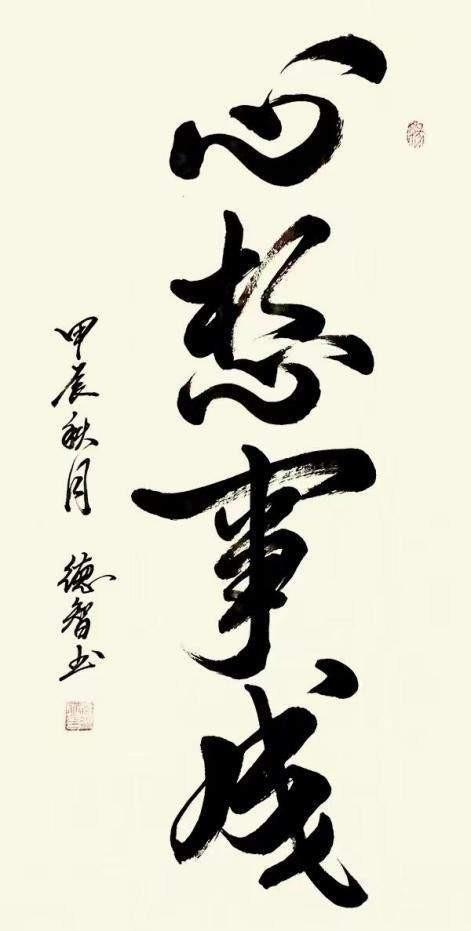 心想事成
甲辰秋月 德智书